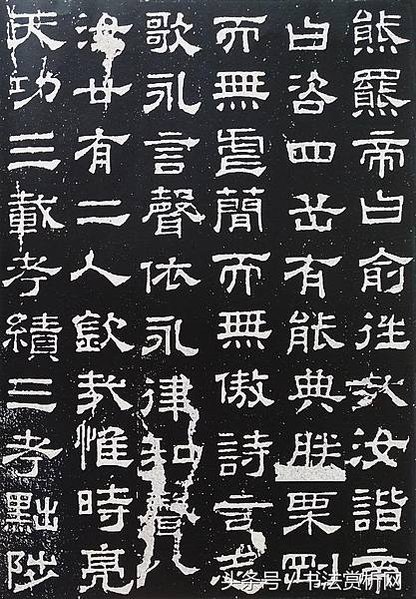 熊羆帝曰俞往哉汝諧帝
曰咨四岳有能典朕栗剛
而無虐簡而無傲詩言志
歌永言聲依永律和聲八
汝廿有二人欽哉惟時亮
天功三載考績三考黜陟
头条号 / 书法赏析网